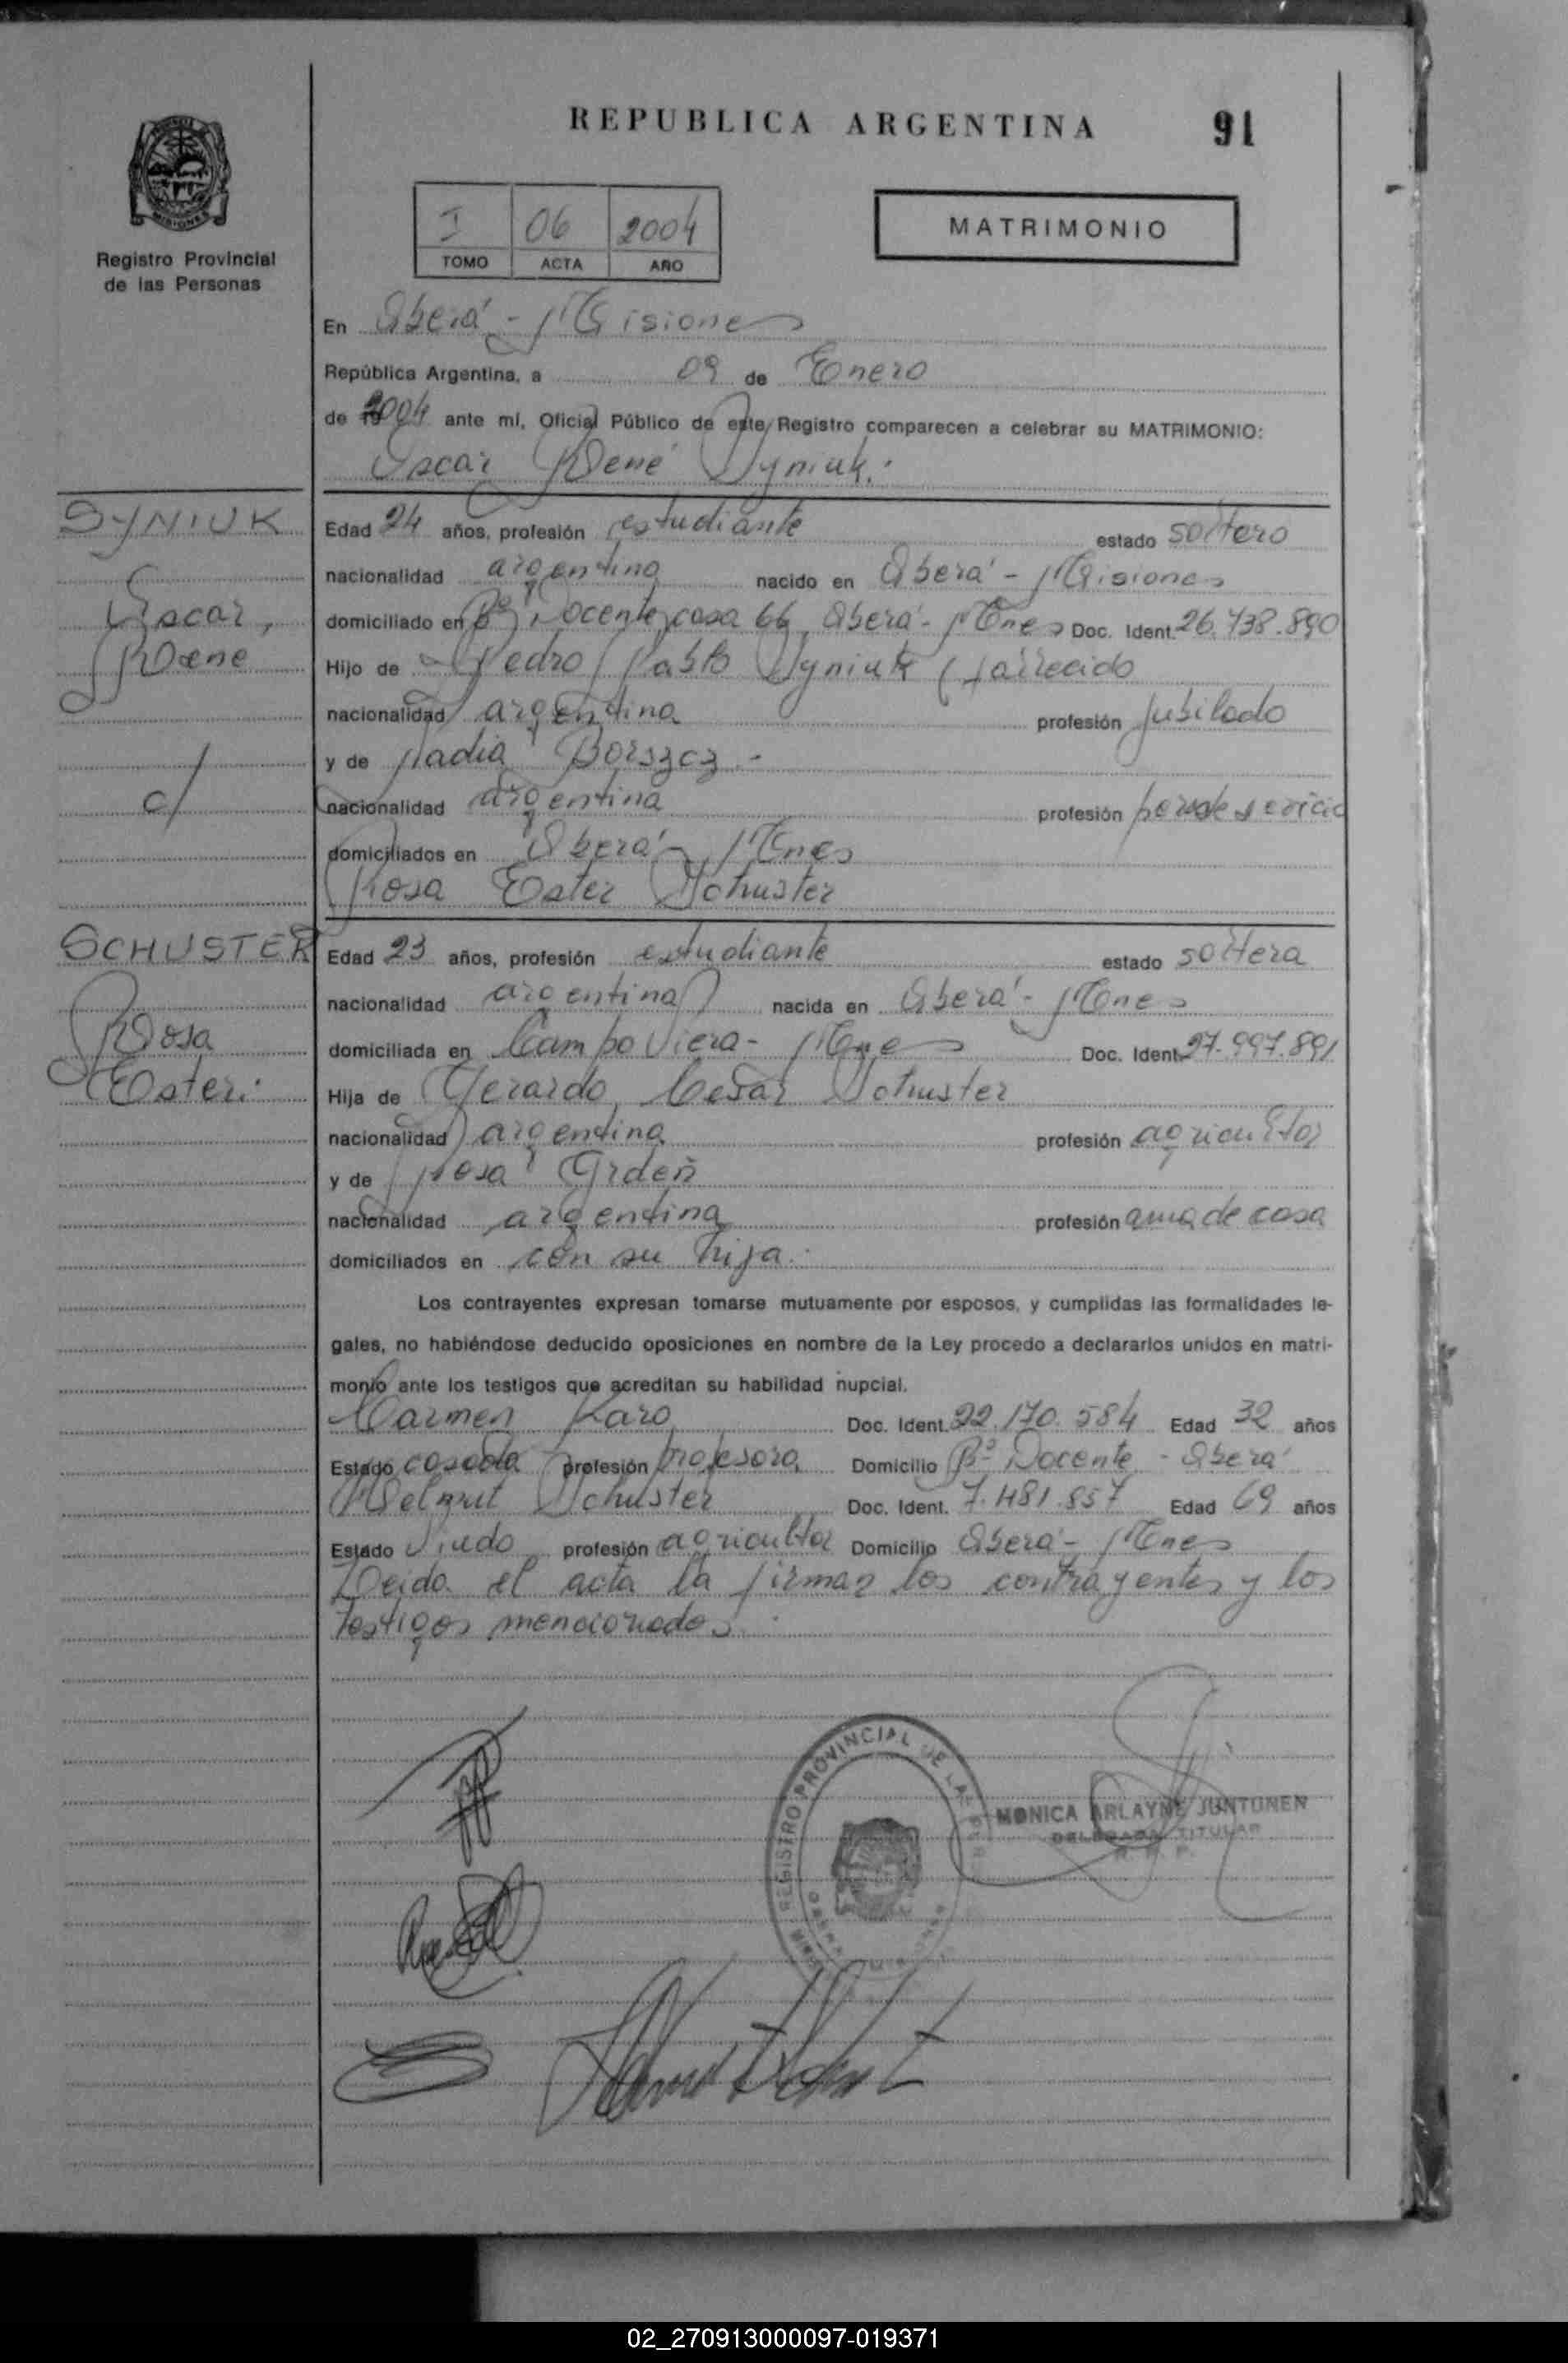 REPUBLICA ARGENTINA 91
MISIONES
Registro Provincial
de las Personas
I 06 2004
TOMO ACTA AÑO
MATRIMONIO
En Oberá - Misiones
República Argentina, a 09 de Enero
de 2004 ante mí, Oficial Público de este Registro comparecen a celebrar su MATRIMONIO:
Oscar René Syniuk.
SYNIUK
Oscar,
Rene
c/
Edad 24 años, profesión estudiante estado soltero
nacionalidad argentina nacido en Oberá - Misiones
domiciliado en Bº Docente casa 66, Oberá - Mnes Doc. Ident. 26.738.890
Hijo de Pedro Pablo Syniuk (fallecido
nacionalidad argentina profesión jubilado
y de Nadia Borszcz -
nacionalidad argentina profesión pers de servicio
domiciliados en Oberá - Mnes
Rosa Ester Schuster
SCHUSTER
Rosa
Ester.
Edad 23 años, profesión estudiante estado soltera
nacionalidad argentina nacida en Oberá - Mnes
domiciliada en Campo Viera - Mnes Doc. Ident. 27.997.891
Hija de Gerardo Cesar Schuster
nacionalidad argentina profesión agricultor
y de Rosa
nacionalidad argentina profesión ama de casa
domiciliados en con su hija.
Los contrayentes expresan tomarse mutuamente por esposos, y cumplidas las formalidades le-
gales, no habiéndose deducido oposiciones en nombre de la Ley procedo a declararlos unidos en matri-
monio ante los testigos que acreditan su habilidad nupcial.
Carmen Karo Doc. Ident. 22.170.584 Edad 32 años
Estado casada profesión profesora Domicilio Bº Docente - Oberá
Helmut Schuster Doc. Ident. 7.481.857 Edad 69 años
Estado Viudo profesión agricultor Domicilio Oberá - Mnes
Leida el acta la firman los contrayentes y los
testigos mencionados.
REGISTRO PROVINCIAL DE LAS
MONICA ARLAYNE JUNTUNEN
DELEGADA TITULAR
R. P. P.
02_270913000097-019371